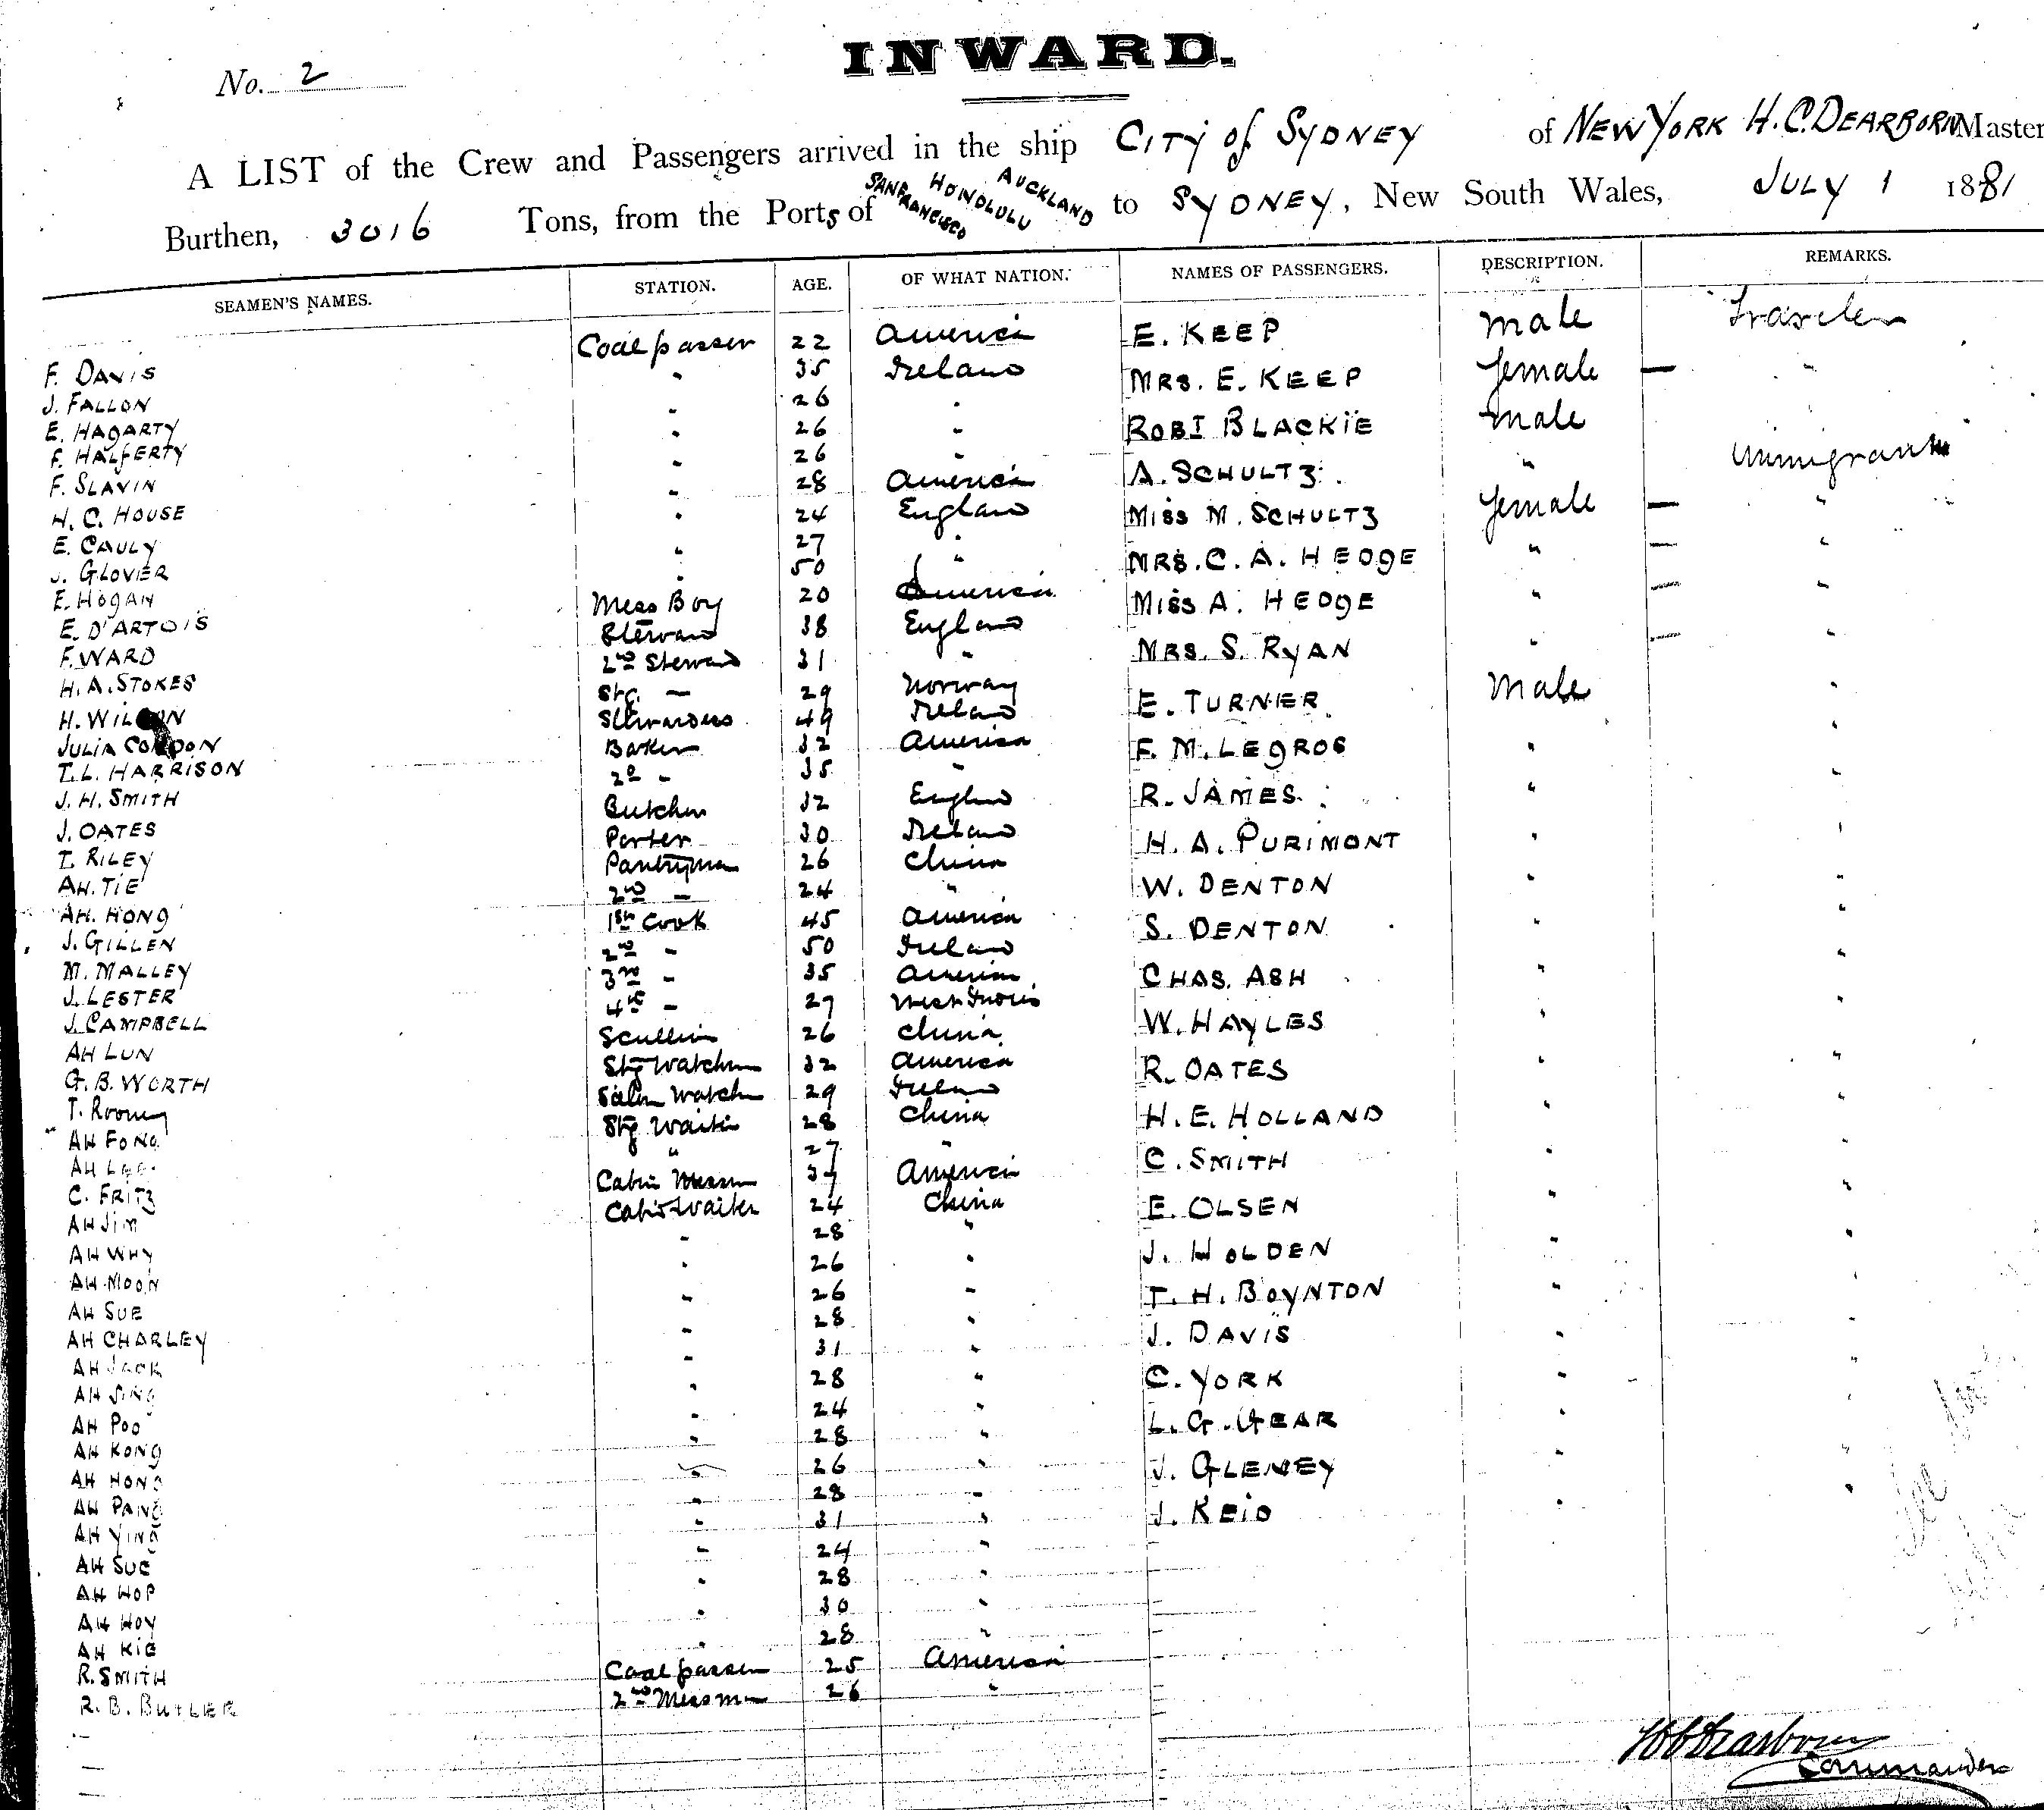 INWARD.
No. 2
A LIST of the Crew and Passengers arrived in the ship CITY of SYDNEY of NEW YORK H. C. DEARBORN Master
Burthen, 3016 Tons, from the Ports of SAN FRANCISCO HONOLULU AUCKLAND to SYDNEY, New South Wales, JULY 1 1881
SEAMEN'S NAMES. STATION. AGE. OF WHAT NATION. NAMES OF PASSENGERS. DESCRIPTION. REMARKS.
F. DAVIS Coal passer 22 America E. KEEP male Traveler
J. FALLON " 35 Ireland MRS. E. KEEP female — "
E. HAGARTY " 26 " ROBT BLACKIE male
F. HALFERTY " 26 " A. SCHULTZ " immigrant
F. SLAVIN " 26 " MISS M. SCHULTZ female — "
H. C. HOUSE " 28 America MRS. C. A. HEDGE " — "
E. CAULY " 24 England MISS A. HEDGE " — "
J. GLOVER " 27 " MRS. S. RYAN " — "
E. HOGAN " 50 " E. TURNER male "
E. D'ARTOIS Mess Boy 20 America F. M. LEGROS " "
F. WARD Steward 38 England R. JAMES " "
H. A. STOKES 2nd Steward 31 " H. A. PURIMONT " "
H. WILSON Stg. — 29 Norway W. DENTON " "
JULIA CONDON Stewardess 49 Ireland S. DENTON " "
T. L. HARRISON Baker 32 America CHAS. ASH " "
J. H. SMITH 2d - 35 " W. HAYLES " "
J. OATES Butcher 32 England R. OATES " "
T. RILEY Porter 30 Ireland H. E. HOLLAND " "
AH. TIE Pantryman 26 China C. SMITH " "
AH. HONG 2nd - 24 " E. OLSEN " "
J. GILLEN 1st Cook 45 America J. HOLDEN " "
M. MALLEY 2nd - 50 Ireland T. H. BOYNTON " "
J. LESTER 3rd - 35 America J. DAVIS " "
J. CAMPBELL 4th - 27 West Indies C. YORK " "
AH LUN Scullion 26 China L. G. GEAR " "
G. B. WORTH Stg Watchm 32 America J. GLENEY " "
T. Rooney Saloon Watchm 29 Ireland J. REID " "
AH FONG Stg Waiter 28 China
AH LEE " 27 "
C. FRITZ Cabin Messm 37 America
AH JIM Cabin Waiter 24 China
AH WHY " 28 "
AH MOON " 26 "
AH SUE " 26 "
AH CHARLEY " 28 "
AH JACK " 31 "
AH SING " 28 "
AH POO " 24 "
AH KONG " 28 "
AH HONG " 26 "
AH PANG " 28 "
AH YING " 31 "
AH SUE " 24 "
AH HOP " 28 "
AH HOY " 30 "
AH KIE " 28 "
R. SMITH Coal passer 25 America
R. B. BUTLER 2nd Messman 26 "
H C Dearborn
Commander